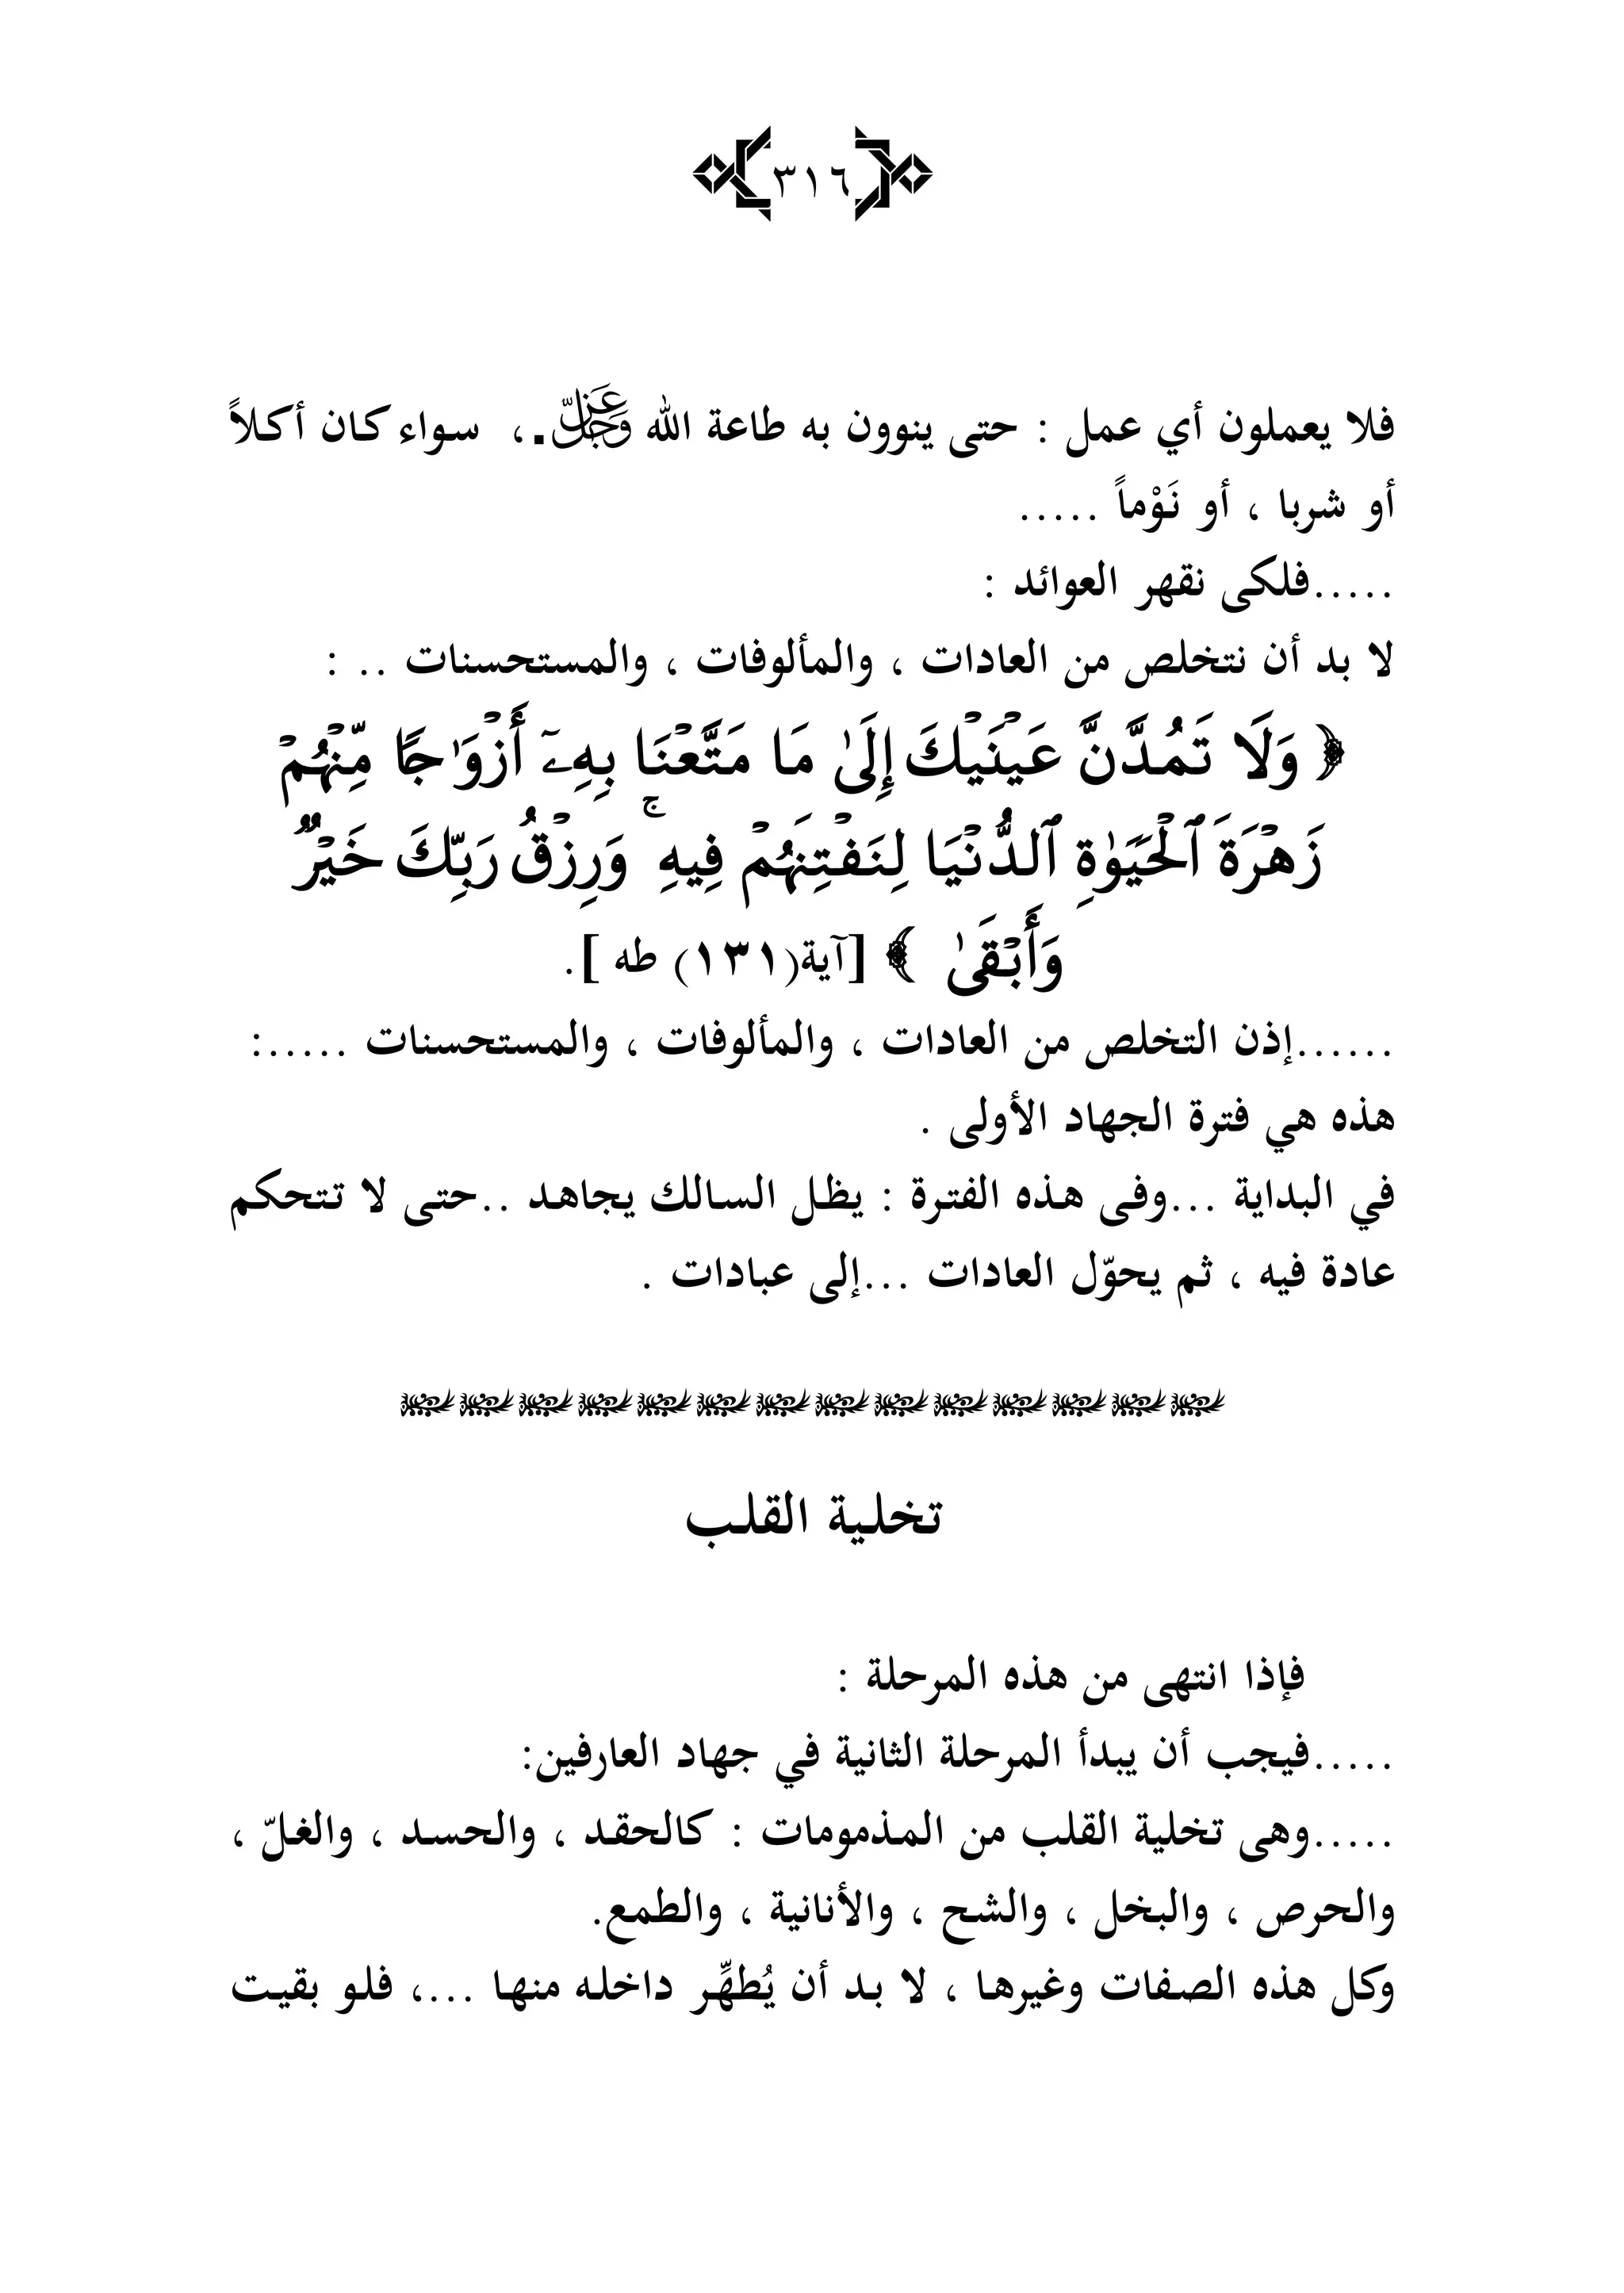 ٣١٦
فلا يعملون أي عمل : حتى ينوون به طاعة الله عَزَّ وَجَلَّ.، سواء كان أكلاً
أو شربا ، أو نَوْماً .....
.....فلكى نقهر العوائد :
لا بد أن نتخلص من العادات ، والمألوفات ، والمستحسنات .. :
﴿ وَلَا تَمُدَّنَّ عَيۡنَيۡكَ إِلَىٰ مَا مَتَّعۡنَا بِهِۦٓ أَزۡوَٰجٗا مِّنۡهُمۡ
زَهۡرَةَ ٱلۡحَيَوٰةِ ٱلدُّنۡيَا لِنَفۡتِنَهُمۡ فِيهِۚ وَرِزۡقُ رَبِّكَ خَيۡرٞ
وَأَبۡقَىٰ ﴾ [آية(١٣١) طه ].
......إذن التخلص من العادات ، والمألوفات ، والمستحسنات .....:
هذه هي فترة الجهاد الأولى .
في البداية ...وفى هذه الفترة : يظل السالك يجاهد ..حتى لا تتحكم
عادة فيه ، ثم يحوّل العادات ...إلى عبادات .
تخلية القلب
فإذا انتهى من هذه المرحلة :
.....فيجب أن يبدأ المرحلة الثانية في جهاد العارفين:
.....وهى تخلية القلب من المذمومات : كالحقد ، والحسد ، والغلّ ،
والحرص ، والبخل ، والشح ، والأنانية ، والطمع.
وكل هذه الصفات وغيرها ، لا بد أن يُطهِّر داخله منها ...، فلو بقيت